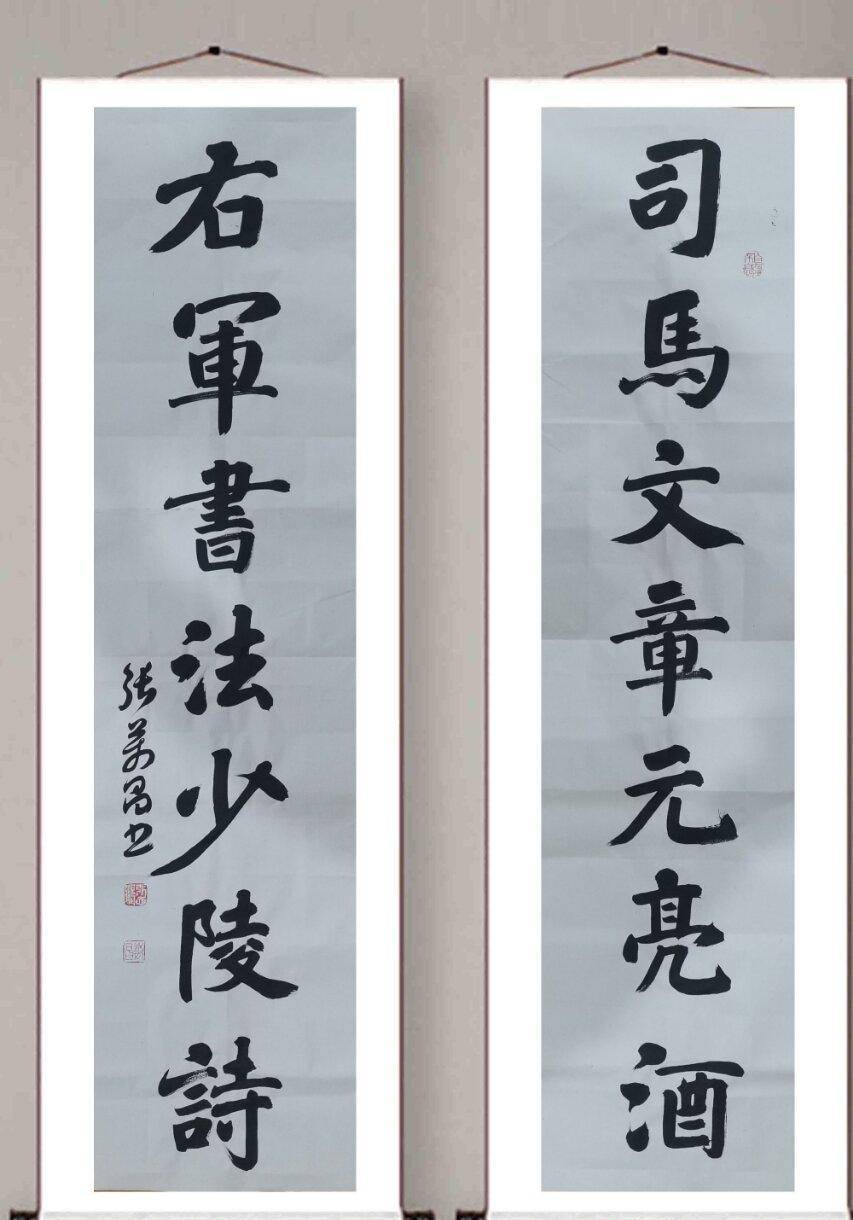 司馬文章元亮酒
右軍書法少陵詩
張萬昌书